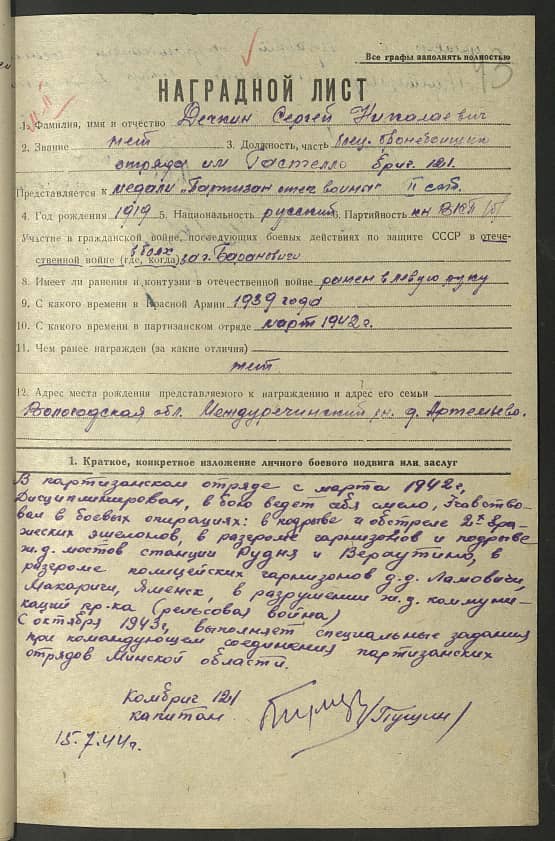 Все графы заполнять полностью
НАГРАДНОЙ ЛИСТ
1. Фамилия, имя и отчество Дечкин Сергей Николаевич
2. Звание нет 3. Должность, часть
отряда им Гастелло бриг. 121.
Представляется к медали „Партизан отеч. войны" II степ.
4. Год рождения 1919 5. Национальность русский 6. Партийность кн ВКП(б)
Участие в гражданской войне, последующих боевых действиях по защите СССР в отече-
ственной войне (где, когда) в боях за г. Барановичи
8. Имеет ли ранения и контузии в отечественной войне ранен в левую руку
9. С какого времени в Красной Армии 1939 года
10. С какого времени в партизанском отряде март 1942 г.
11. Чем ранее награжден (за какие отличия)
нет
12. Адрес места рождения представляемого к награждению и адрес его семьи
Вологодская обл. Междуреченский рн. д. Артемьево.
1. Краткое, конкретное изложение личного боевого подвига или заслуг
В партизанском отряде с марта 1942 г,
Дисциплинирован, в бою ведет себя смело, Участво-
вал в боевых операциях: в подрыве и обстреле 2х вра-
жеских эшелонов, в разгроме гарнизонов и подрыве
ж.д. мостов станции Рудня и Вераутино, в
разгроме полицейских гарнизонов д.д. Ламовичи,
Макаричи, Яменск, в разрушении ж.д. коммуни-
каций пр-ка (рельсовая война)
С октября 1943 г, выполняет специальные задания
при командующем соединения партизанских
отрядов Минской области.
Комбриг 121
капитан (Пущин)
15.7.44 г.